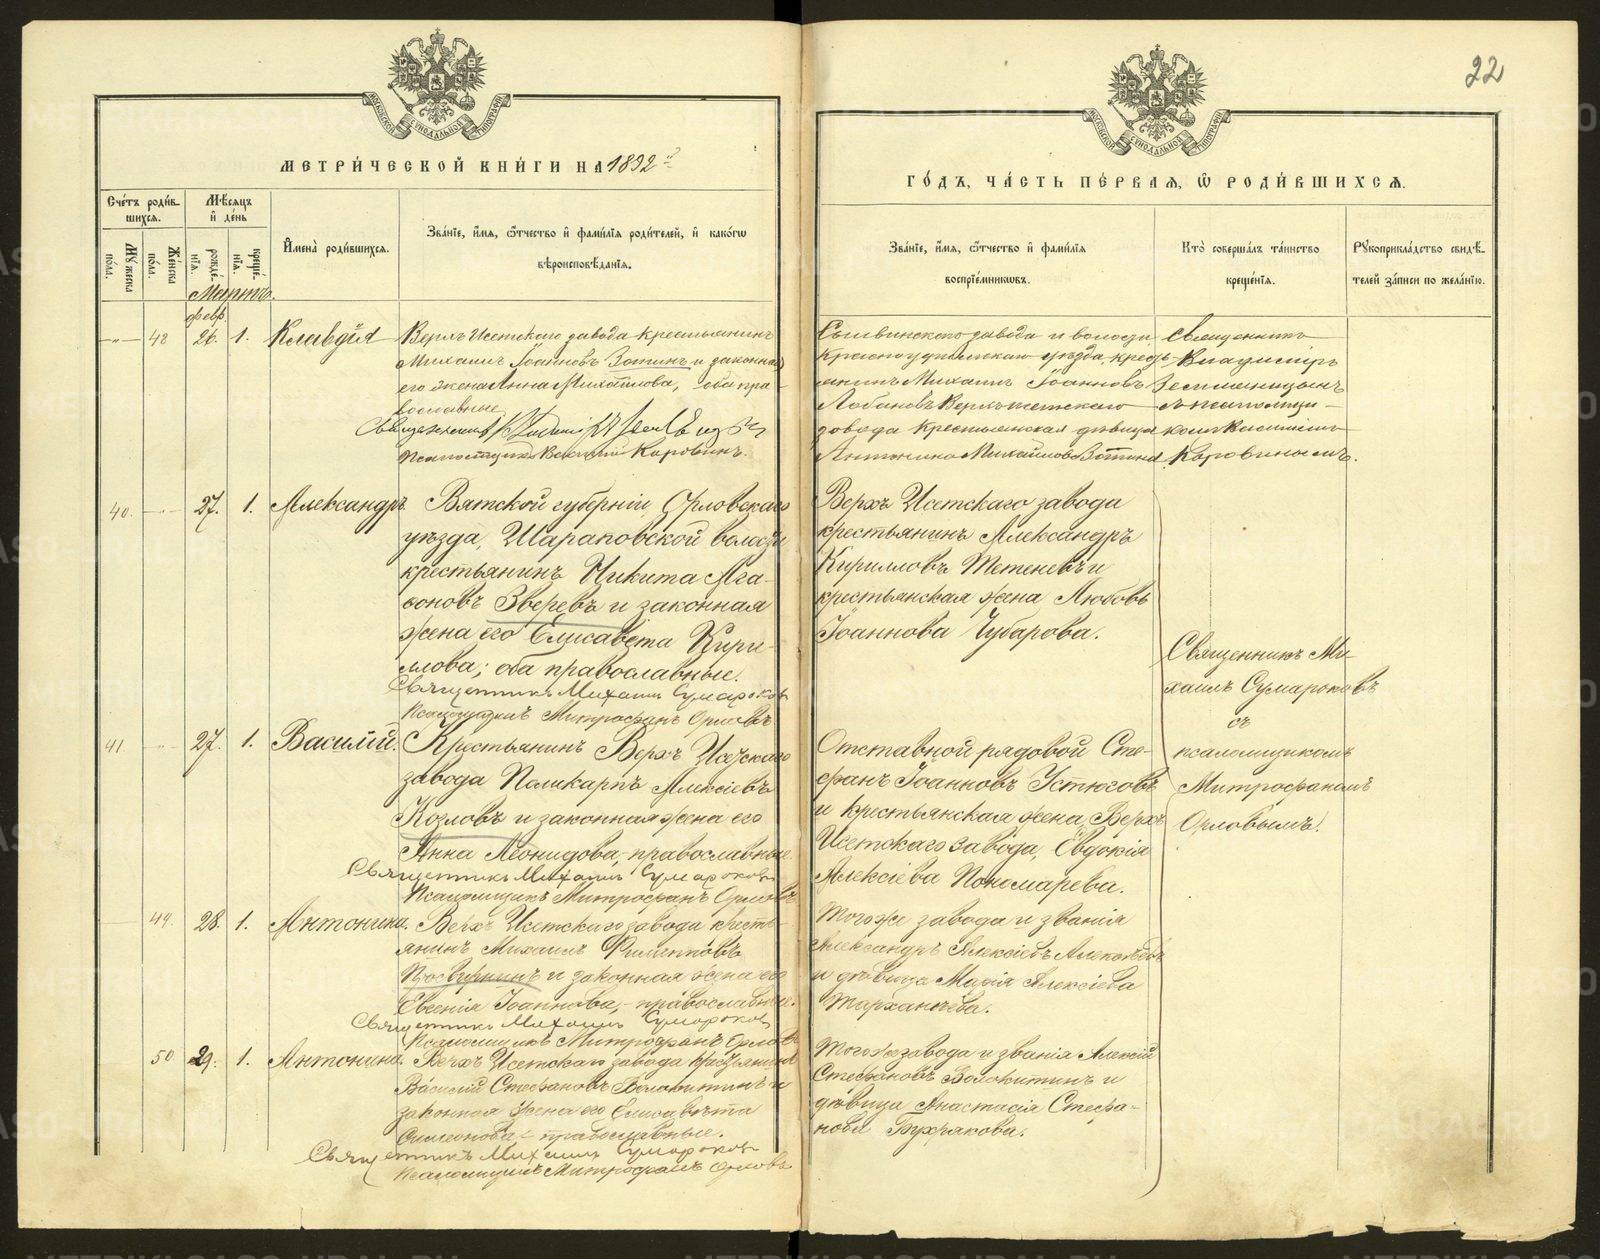 22
МЕТРИ́ЧЕСКОЙ КНИ́ГИ НА 1892 й
ГО́ДЪ, ЧА́СТЬ ПЕ́РВАЯ, Ѡ РОДИ́ВШИХСЯ.
Сче́тъ роди́в-
шихся.
Му́жеска
по́ла.
Же́нска
по́ла.
Мѣ́сяцъ
и҆ де́нь
рожде́-
нїя.
креще́-
нїя.
И҆мена̀ роди́вшихся.
Зва́нїе, и҆́мя, ѻ҆́тчество и҆ фами́лїя роди́телей, и҆ како́гѡ
вѣроисповѣ́данїя.
Зва́нїе, и҆́мя, ѻ҆́тчество и҆ фами́лїя
воспрїе́мникѡвъ.
Кто̀ соверша́лъ та́инство
креще́нїя.
Рꙋкоприкла́дство свидѣ́-
телей за́писи по жела́нїю.
Мартъ.
февр.
48 26. 1. Клавдія
Верхъ Исетскаго завода крестьянинъ
Михаилъ Іоанновъ Зотинъ и законная
его жена Анна Михайлова, оба пра-
вославные
Священникъ
Псаломщикъ Василій Коровинъ.
Сылвинскаго завода и волости
Красноуфимскаго уѣзда, кресть-
янинъ Михаилъ Іоанновъ
Лобановъ Верхъ Исетскаго
завода крестьянская дѣвица
Антонина Михайлова Зотина
Священникъ
Владимиръ
Земляницынъ
съ псаломщи-
комъ Василіемъ
Коровинымъ.
40. 27. 1. Александръ.
Вятской губерніи, Орловскаго
уѣзда, Шараповской волости
крестьянинъ Никита Ага-
фоновъ Зверевъ и законная
жена его Елисавета Кири-
ллова; оба православные.
Священникъ Михаилъ Сумароковъ
Псаломщикъ Митрофанъ Орловъ
Верхъ Исетскаго завода
крестьянинъ Александръ
Кирилловъ Тетеневъ и
крестьянская жена Любовь
Іоаннова Чубарова.
Священникъ Ми-
хаилъ Сумароковъ
съ
псаломщикомъ
Митрофаномъ
Орловымъ.
41. 27. 1. Василій.
Крестьянинъ Верхъ Исетскаго
завода Поликарпъ Алексіевъ
Козловъ и законная жена его
Анна Леонидова, православные
Священникъ Михаилъ Сумароковъ
Псаломщикъ Митрофанъ Орловъ
Отставной рядовой Сте-
фанъ Іоанновъ Устюговъ
и крестьянская жена Верхъ
Исетскаго завода, Евдокія
Алексіева Пономарева.
49. 28. 1. Антонина.
Верхъ Исетскаго завода кресть-
янинъ Михаилъ Филипповъ
Просвирнинъ и законная жена его
Евгенія Іоаннова, православные.
Священникъ Михаилъ Сумароковъ
Псаломщикъ Митрофанъ Орловъ
Тогоже завода и званія
Александръ Алексіевъ
и дѣвица Марія Алексіева
Тарханѣева.
50. 29. 1. Антонина.
Верхъ Исетскаго завода крестьянинъ
Василій Стефановъ Волокитинъ и
законная жена его Елисавета
Симеонова православные.
Священникъ Михаилъ Сумароковъ
Псаломщикъ Митрофанъ Орловъ
Тогоже завода и званія Алексій
Стефановъ Волокитинъ и
дѣвица Анастасія Стефа-
нова Бухрякова.